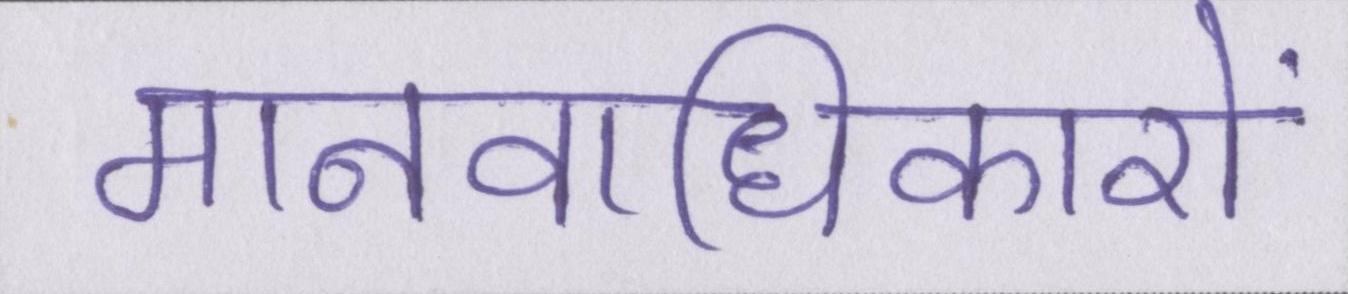 मानवाधिकारों